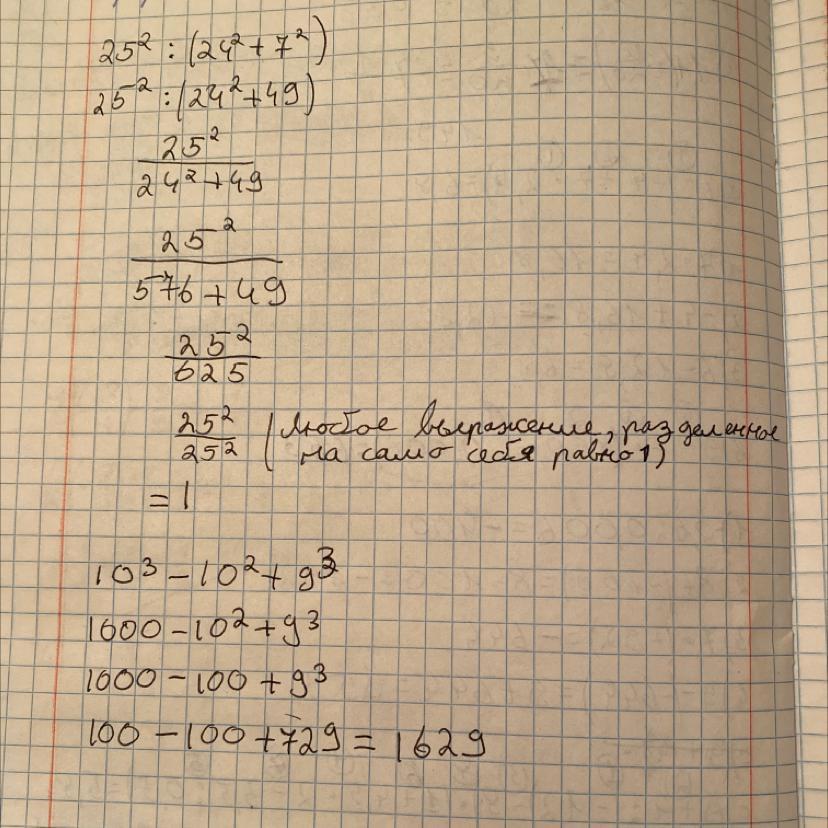 25² : (24² + 7²)
25² : (24² + 49)
25²
24² + 49
25²
576 + 49
25²
625
25² (любое выражение, разделенное
25² на само себя равно 1)
= 1
10³ – 10² + 9³
1000 – 10² + 9³
1000 – 100 + 9³
100 – 100 + 729 = 1629